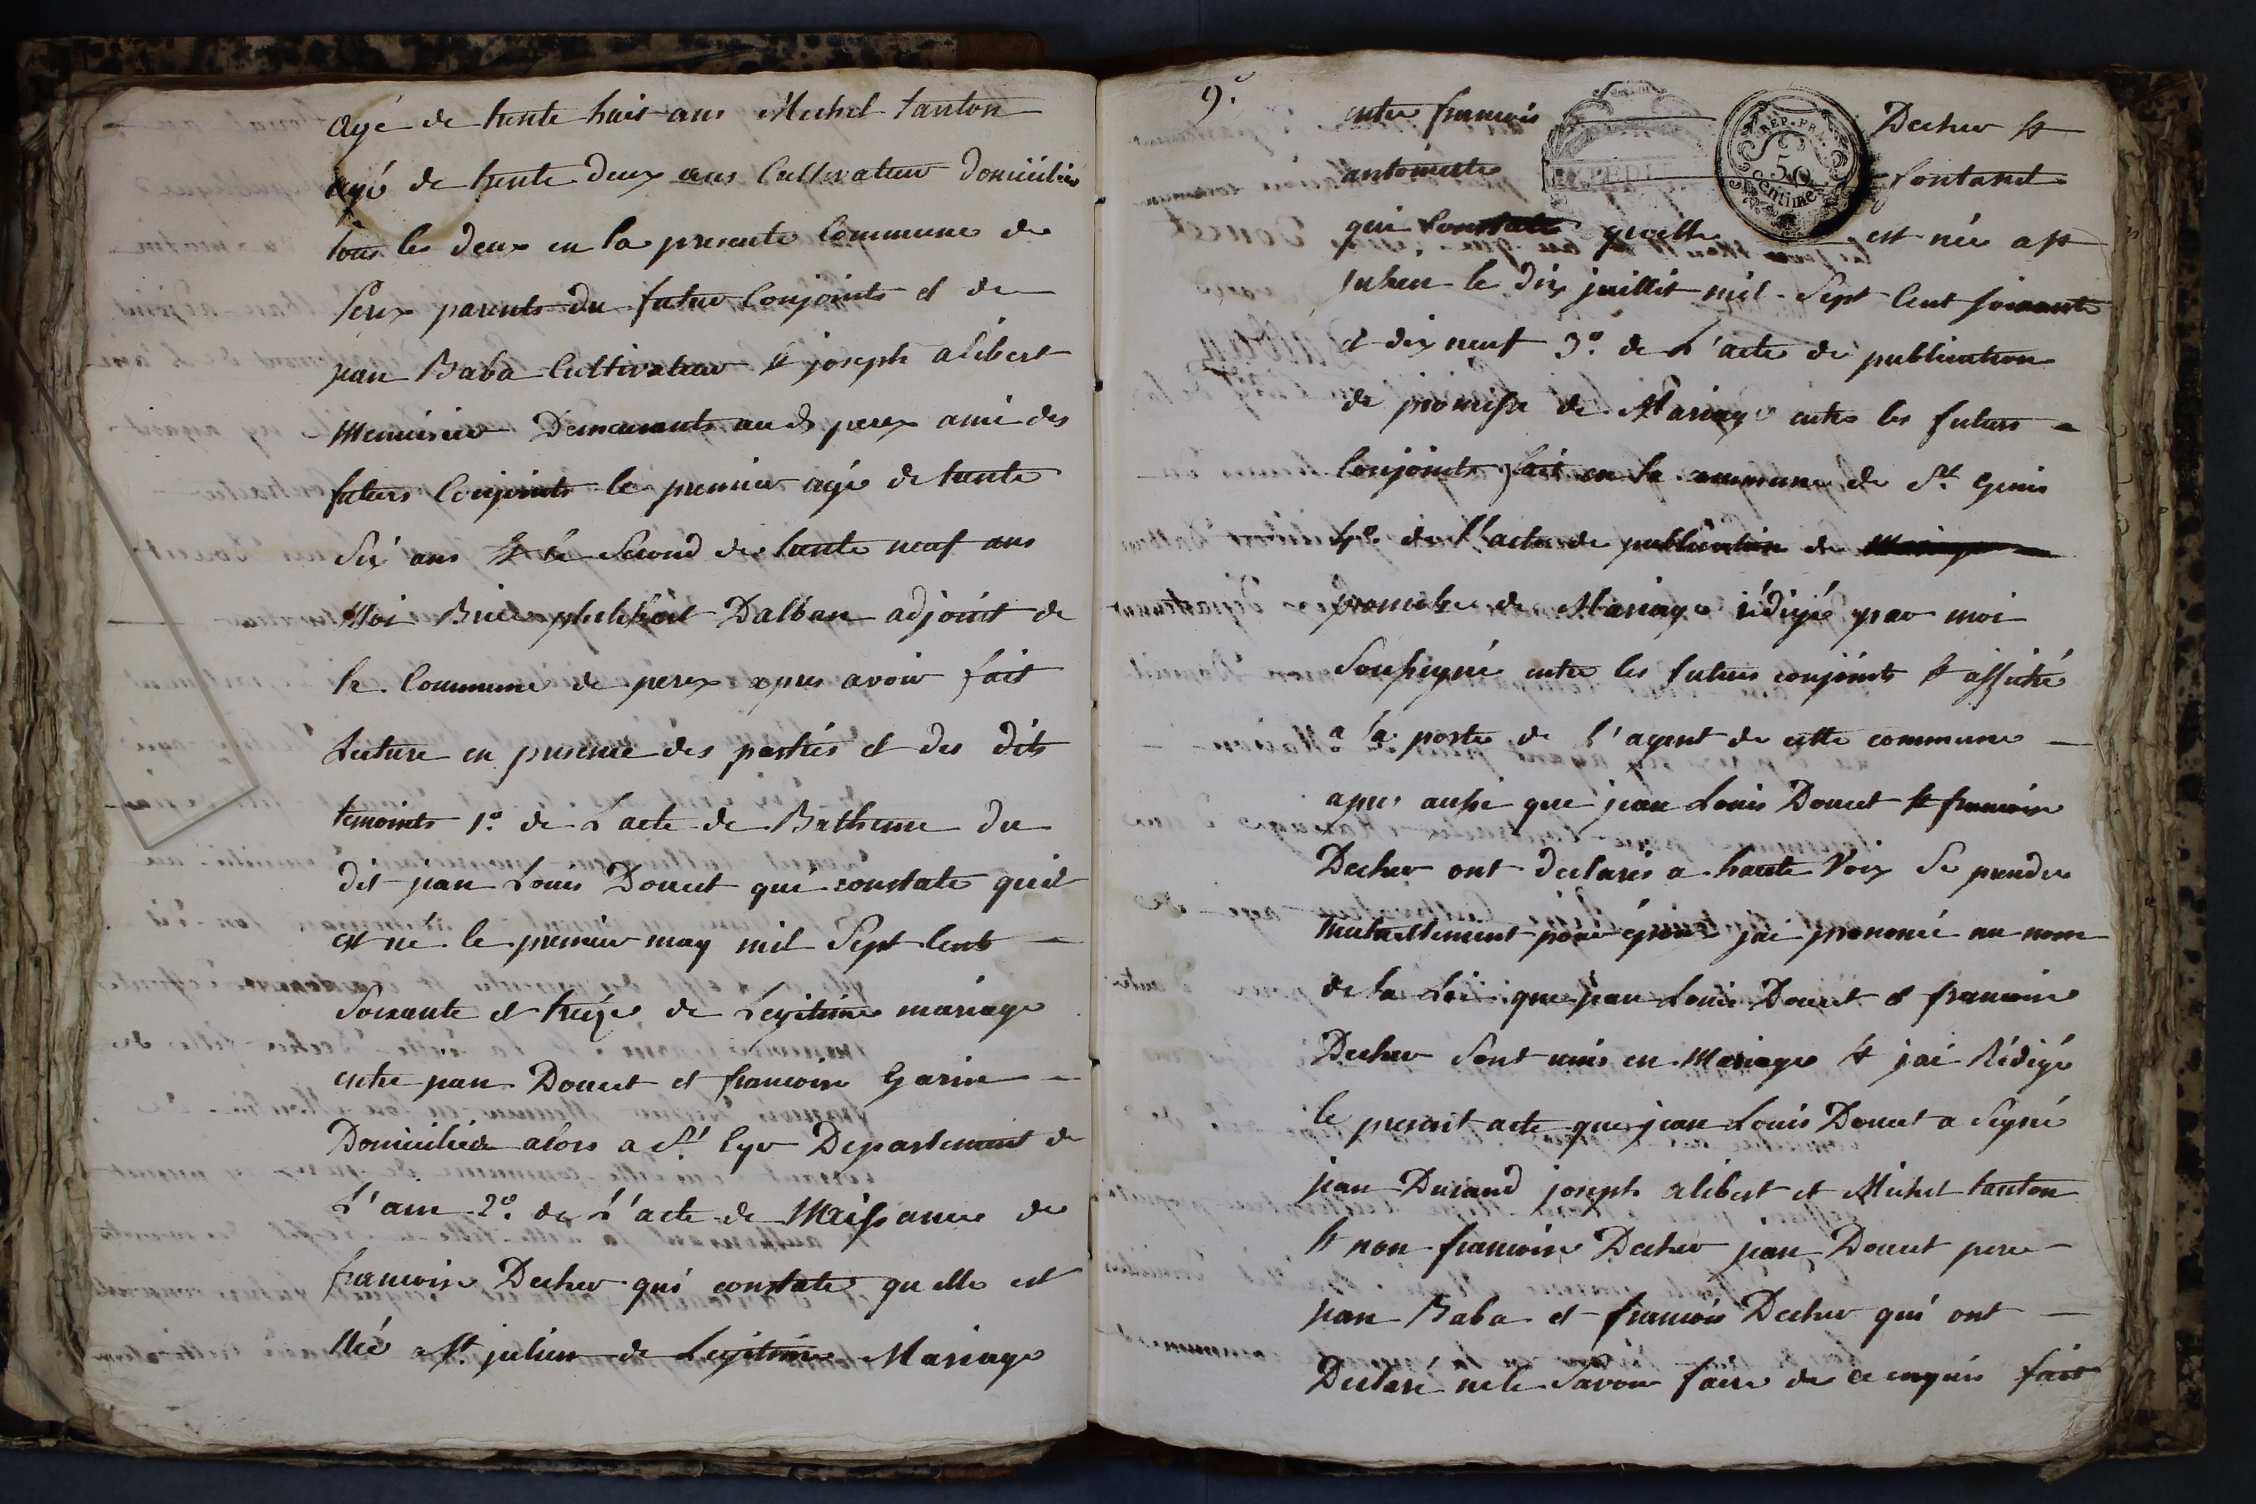 agé de trente huit ans Michel tanton
agé de trente deux ans Cultivateur domiciliés
tous les deux en la presente Commune de
perex parents du futur Conjoints et de
jean Baba Cultivateur & joseph alibert
Menuisier Demeurants au d perex ami des
futurs Conjoints le premier agé de trente
Six ans & le Second de trente neuf ans
Moi Brice philibert Dalban adjoint de
la Commune de perex apres avoir fait
Lecture en presence des parties et des dits
temoints 1o. de L'acte de Batheme du
dit jean Louis Doucet qui constate quil
est né le premier may mil Sept Cent
Soixante et treize de Legitime mariage
entre jean Doucet et francoise Garin
Domiciliés alors a St. Cyr Departement de
L'ain 2o. de L'acte de Naissance de
francoise Decher qui constate qu elle est
Née a St. julien de Legitime Mariage
9.
entre francois Decher &
antoinette fontanel
qui Constate quelle est née a St
julien le dix juillet mil Sept Cent soixante
et dix neuf 3o. de L'acte de publication
de promesse de Mariage entre les futurs
Conjoints fait en la commune de St. Genis
4o. de l'acte de publication de
promesse de Mariage rédigé par moi
Soussigné entre les futurs conjoints & affiché
a la porte de l'agent de cette commune
apres aussi que jean Louis Doucet & francoise
Decher ont declarés a haute Voix Se prendre
Mutuellement pour époux jai prononcé au nom
de la Loi que jean Louis Doucet & francoise
Decher Sont unis en Mariage & jai Rédigé
le present acte que jean Louis Doucet a Signé
jean Durand joseph alibert et Michel tanton
& non francoise Decher jean Doucet pere
jean Baba et francois Decher qui ont
Declaré ne le Savoir faire de ce enquis fait
REP. FRA.
50
centimes